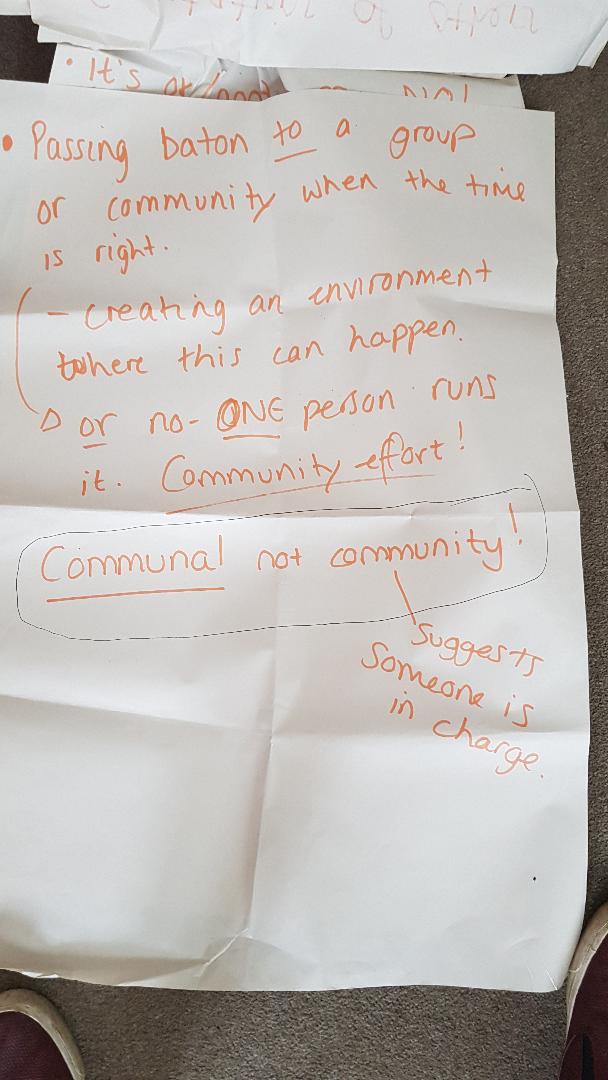 • It's
• Passing baton to a group
or community when the time
is right.
- creating an environment
where this can happen.
or no-ONE person runs
it. Community effort!
Communal not community!
Suggests
Someone is
in charge.